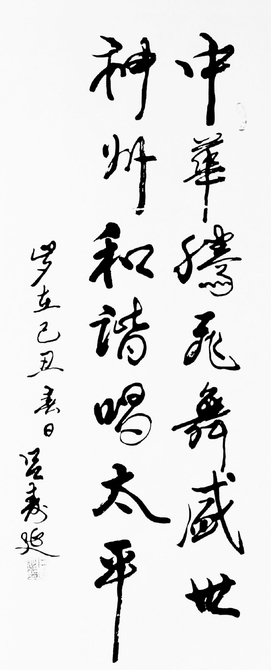 中華騰飛舞盛世
神州和諧唱太平
岁在己丑春日